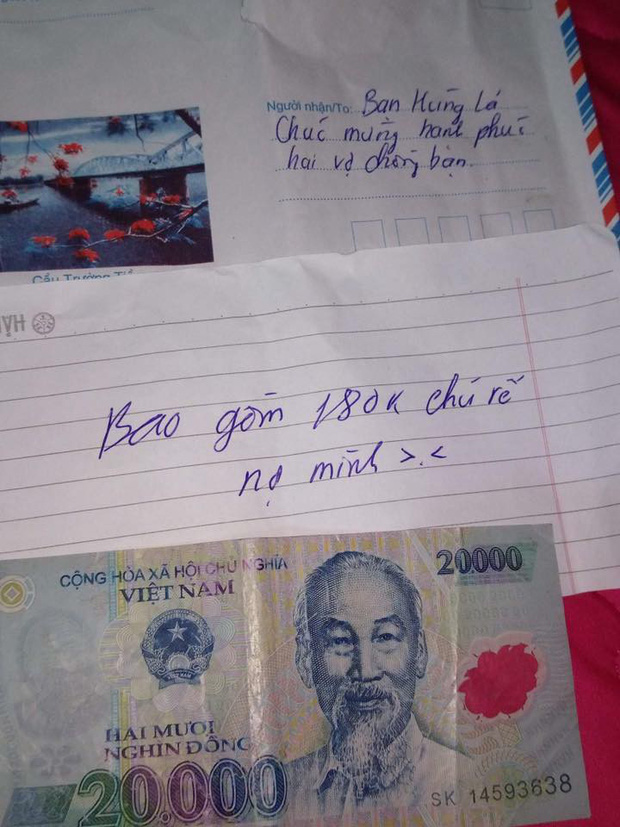 Người nhận/To: Bạn Hưng Lá
Chúc mừng hạnh phúc
hai vợ chồng bạn.
Cầu Trường Tiền
HẢI
Bao gồm 180k chú rể
nợ mình >.<
CỘNG HÒA XÃ HỘI CHỦ NGHĨA
VIỆT NAM
20000
HAI MƯƠI
NGHÌN ĐỒNG
20.000
SK 14593638